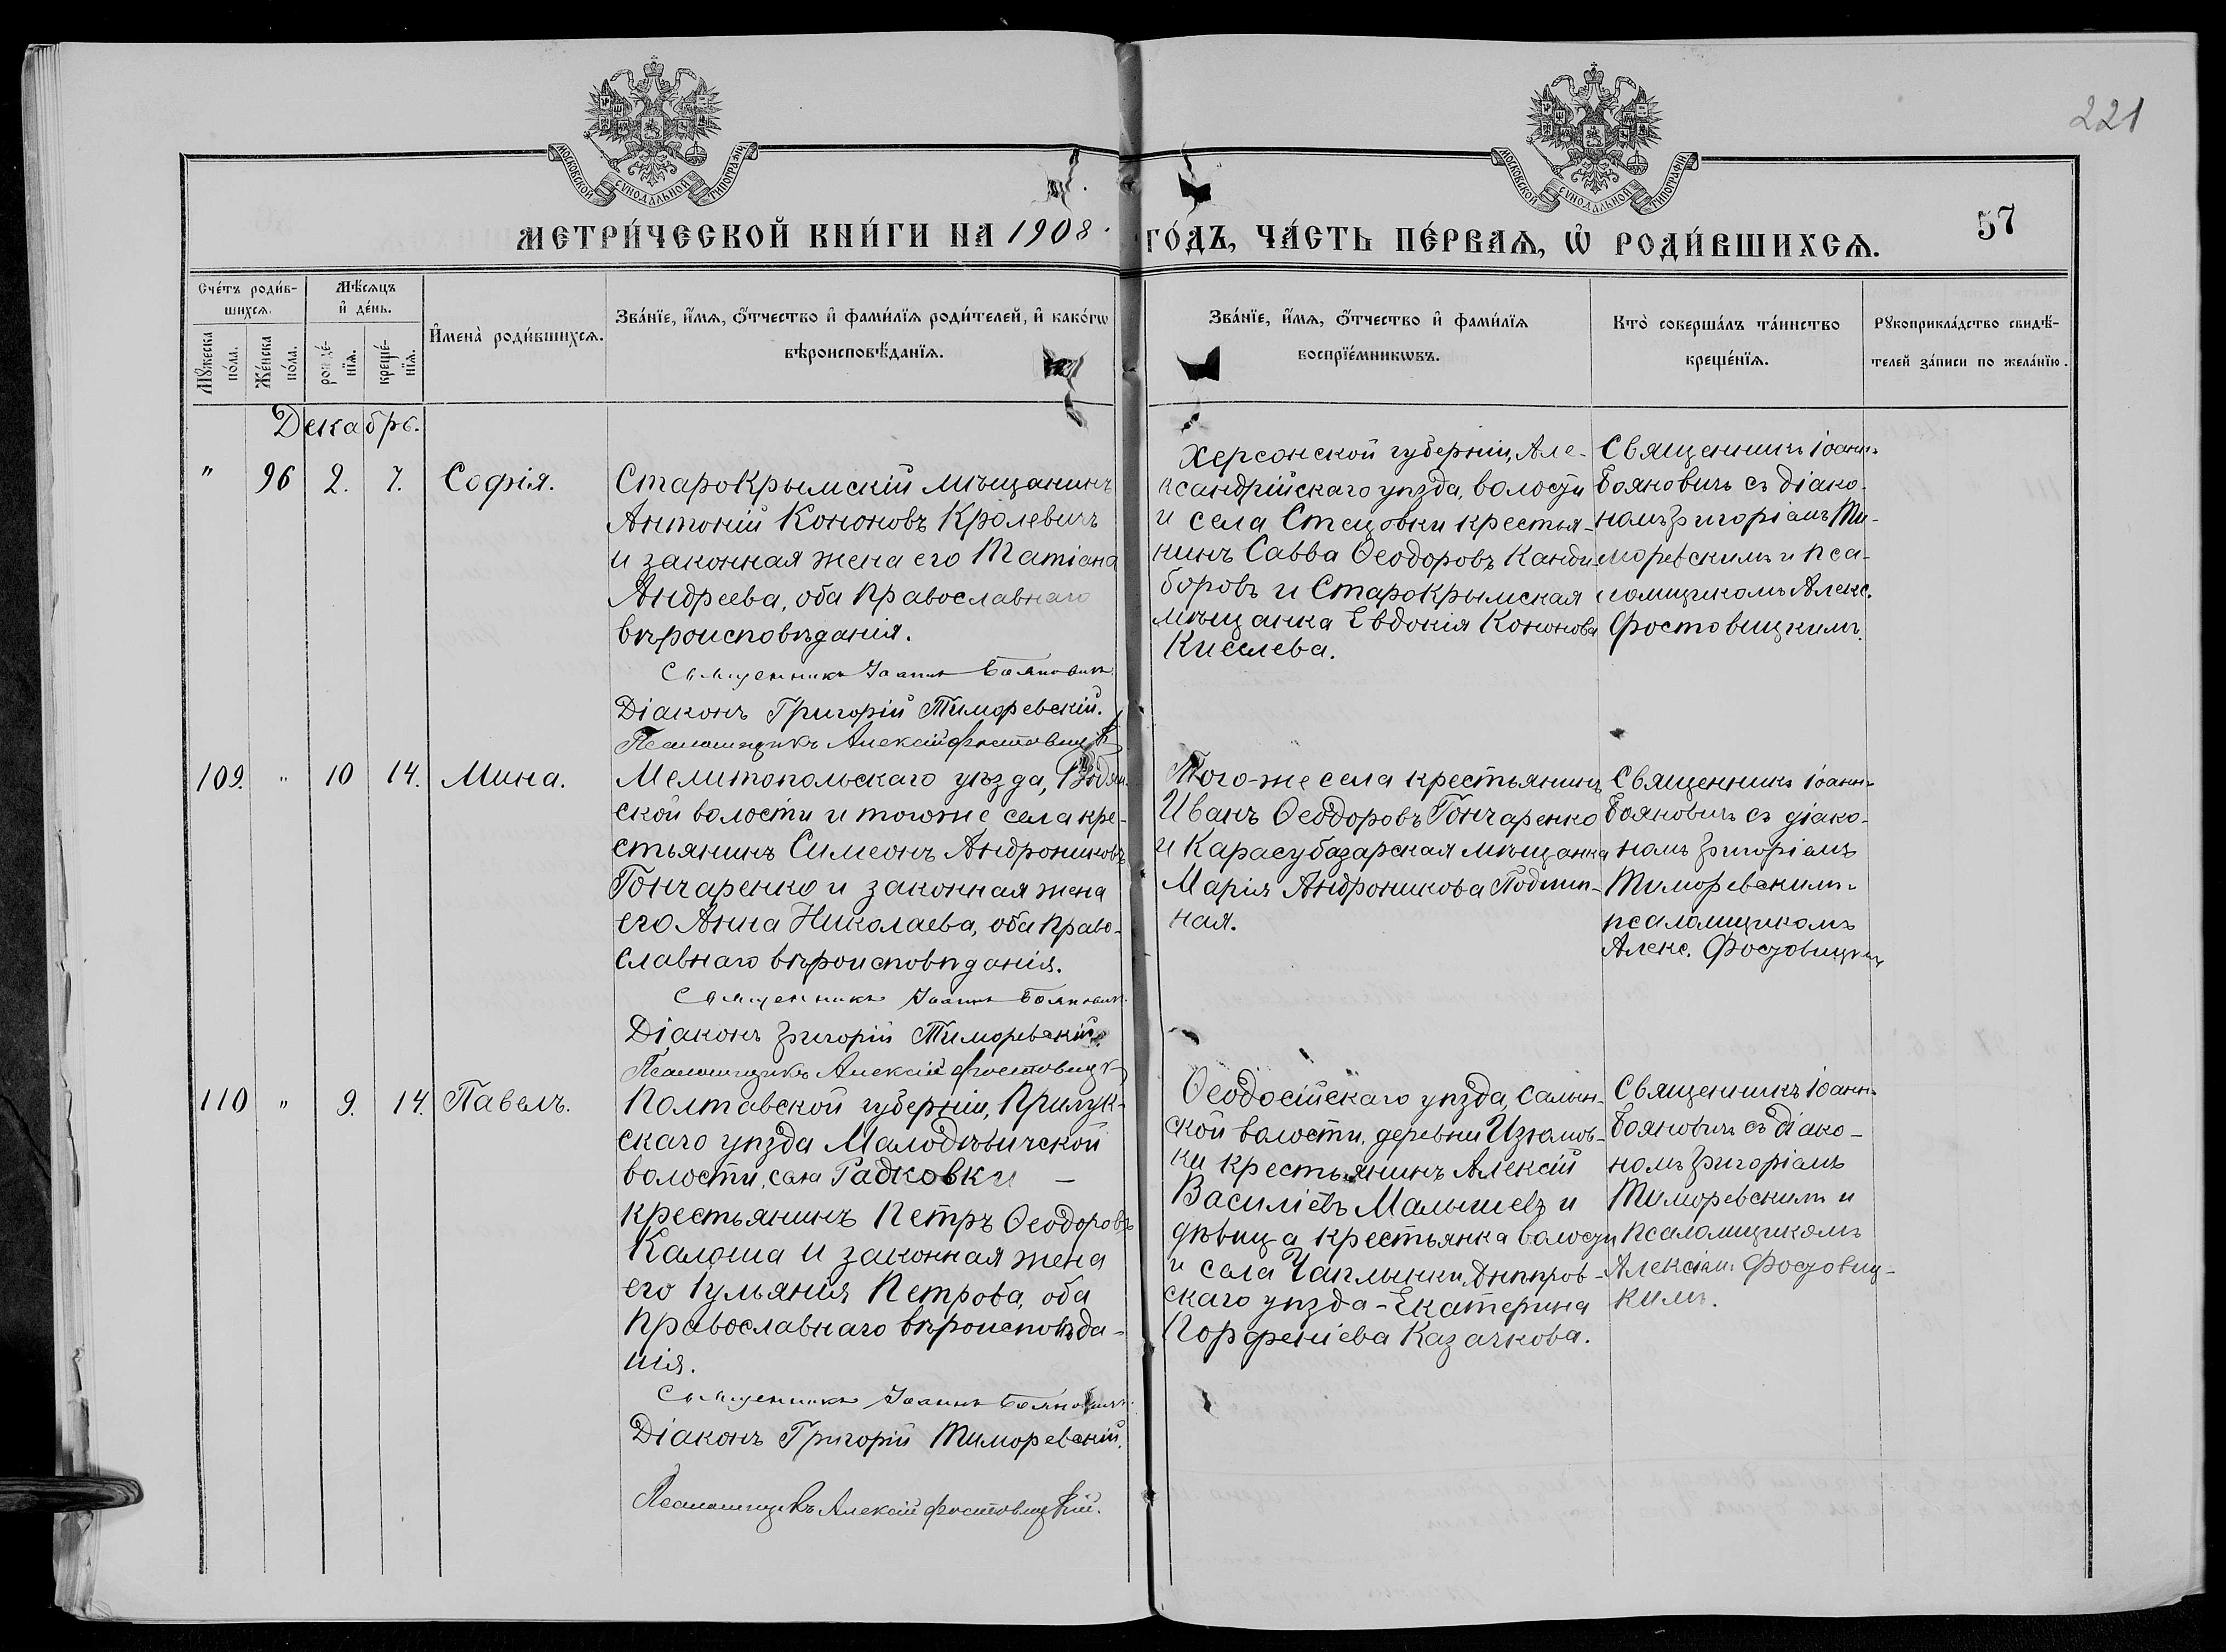 МОСКОВСКОЙ СУНОДАЛЬНОЙ ТИПОГРАФІИ
МОСКОВСКОЙ СУНОДАЛЬНОЙ ТИПОГРАФІИ
221
МЕТРИ́ЧЕСКОЙ КНИ́ГИ НА 1908
ГО́ДЪ, ЧА́СТЬ ПЕ́РВАѦ, Ѽ РОДИ́ВШИХСѦ.
57
Сче́тъ роди́в-
шихсѧ.
Мѣ́сѧцъ
и҆ де́нь.
Мꙋ́жеска
по́ла.
Же́нска
по́ла.
рожде́-
нїѧ.
креще́-
нїѧ.
И҆мена̀ роди́вшихсѧ.
Зва́нїе, и҆́мѧ, ѻ҆́тчество и҆ фами́лїѧ роди́телей, и҆ како́гѡ
вѣроисповѣ́данїѧ.
Зва́нїе, и҆́мѧ, ѻ҆́тчество и҆ фами́лїѧ
воспрїе́мникѡвъ.
Кто̀ соверша́лъ та́инство
креще́нїѧ.
Рꙋкоприкла́дство свидѣ́-
телей за́писи по жела́нїю.
Декабрь.
" 96 2. 7. Софія.
Старокрымскій мѣщанинъ
Антоній Кононовъ Кролевичъ
и законная жена его Татіана
Андреева, оба православнаго
вѣроисповѣданія.
Священникъ Іоаннъ Бояновичъ.
Діаконъ Григорій Тиморевскій.
Псаломщикъ Алексій Фостовицк
Херсонской губерніи, Але-
ксандрійскаго уѣзда, волости
и села Стецовки крестья-
нинъ Савва Ѳеодоровъ Канди-
боровъ и Старокрымская
мѣщанка Евдокія Кононова
Киселева.
Священникъ Іоаннъ
Бояновичъ съ діако-
номъ Григоріемъ Ти-
моревскимъ и пса-
ломщикомъ Алекс.
Фостовицкимъ.
109. " 10 14. Мина.
Мелитопольскаго уѣзда, Водян-
ской волости и тогоже села кре-
стьянинъ Симеонъ Андрониковъ
Гончаренко и законная жена
его Анна Николаева, оба право-
славнаго вѣроисповѣданія.
Священникъ Іоаннъ Бояновичъ.
Діаконъ Григорій Тиморевскій.
Псаломщикъ Алексій Фостовицк
Того-же села крестьянинъ
Иванъ Ѳеодоровъ Гончаренко
и Карасубазарская мѣщанка
Марія Андроникова Подпип-
ная.
Священникъ Іоаннъ
Бояновичъ съ діако-
номъ Григоріемъ
Тиморевскимъ
псаломщикомъ
Алекс. Фостовицкимъ
110 " 9. 14. Павелъ.
Полтавской губерніи, Прилук-
скаго уѣзда Малодѣвичской
волости, села Радковки —
крестьянинъ Петръ Ѳеодоровъ
Калоша и законная жена
его Іульянія Петрова, оба
православнаго вѣроисповѣда-
нія.
Священникъ Іоаннъ Бояновичъ.
Діаконъ Григорій Тиморевскій.
Псаломщикъ Алексій Фостовицкій.
Ѳеодосійскаго уѣзда, Салын-
ской волости, деревни Изюмов-
ки крестьянинъ Алексій
Василіевъ Малышевъ и
дѣвица крестьянка волости
и села Чаплынки, Днѣпров-
скаго уѣзда - Екатерина
Порфиріева Казачкова.
Священникъ Іоаннъ
Бояновичъ съ діако-
номъ Григоріемъ
Тиморевскимъ и
псаломщикомъ
Алексіемъ Фостовиц-
кимъ.